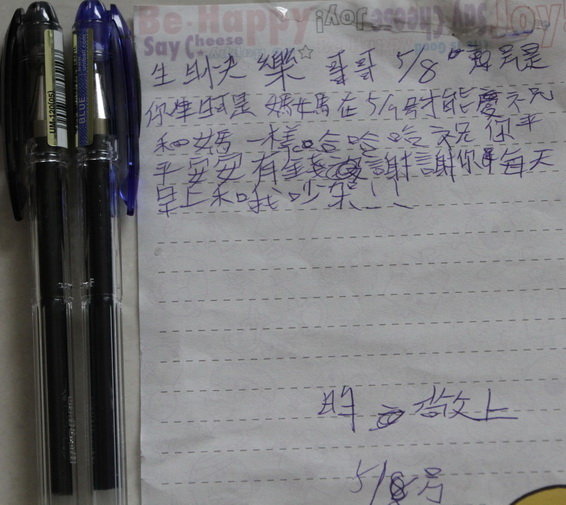 Be Happy
Say Cheese
Joy!
Say Cheese
Joy
UM-120(05)
BLUE
生 快樂 哥哥 5/8 號是
你 是 媽媽在5/9号才能慶祝
和媽一樣哈哈哈 祝你平
平安安有錢 謝謝你 每天
早上和我吵架!!
敬上
5/8号